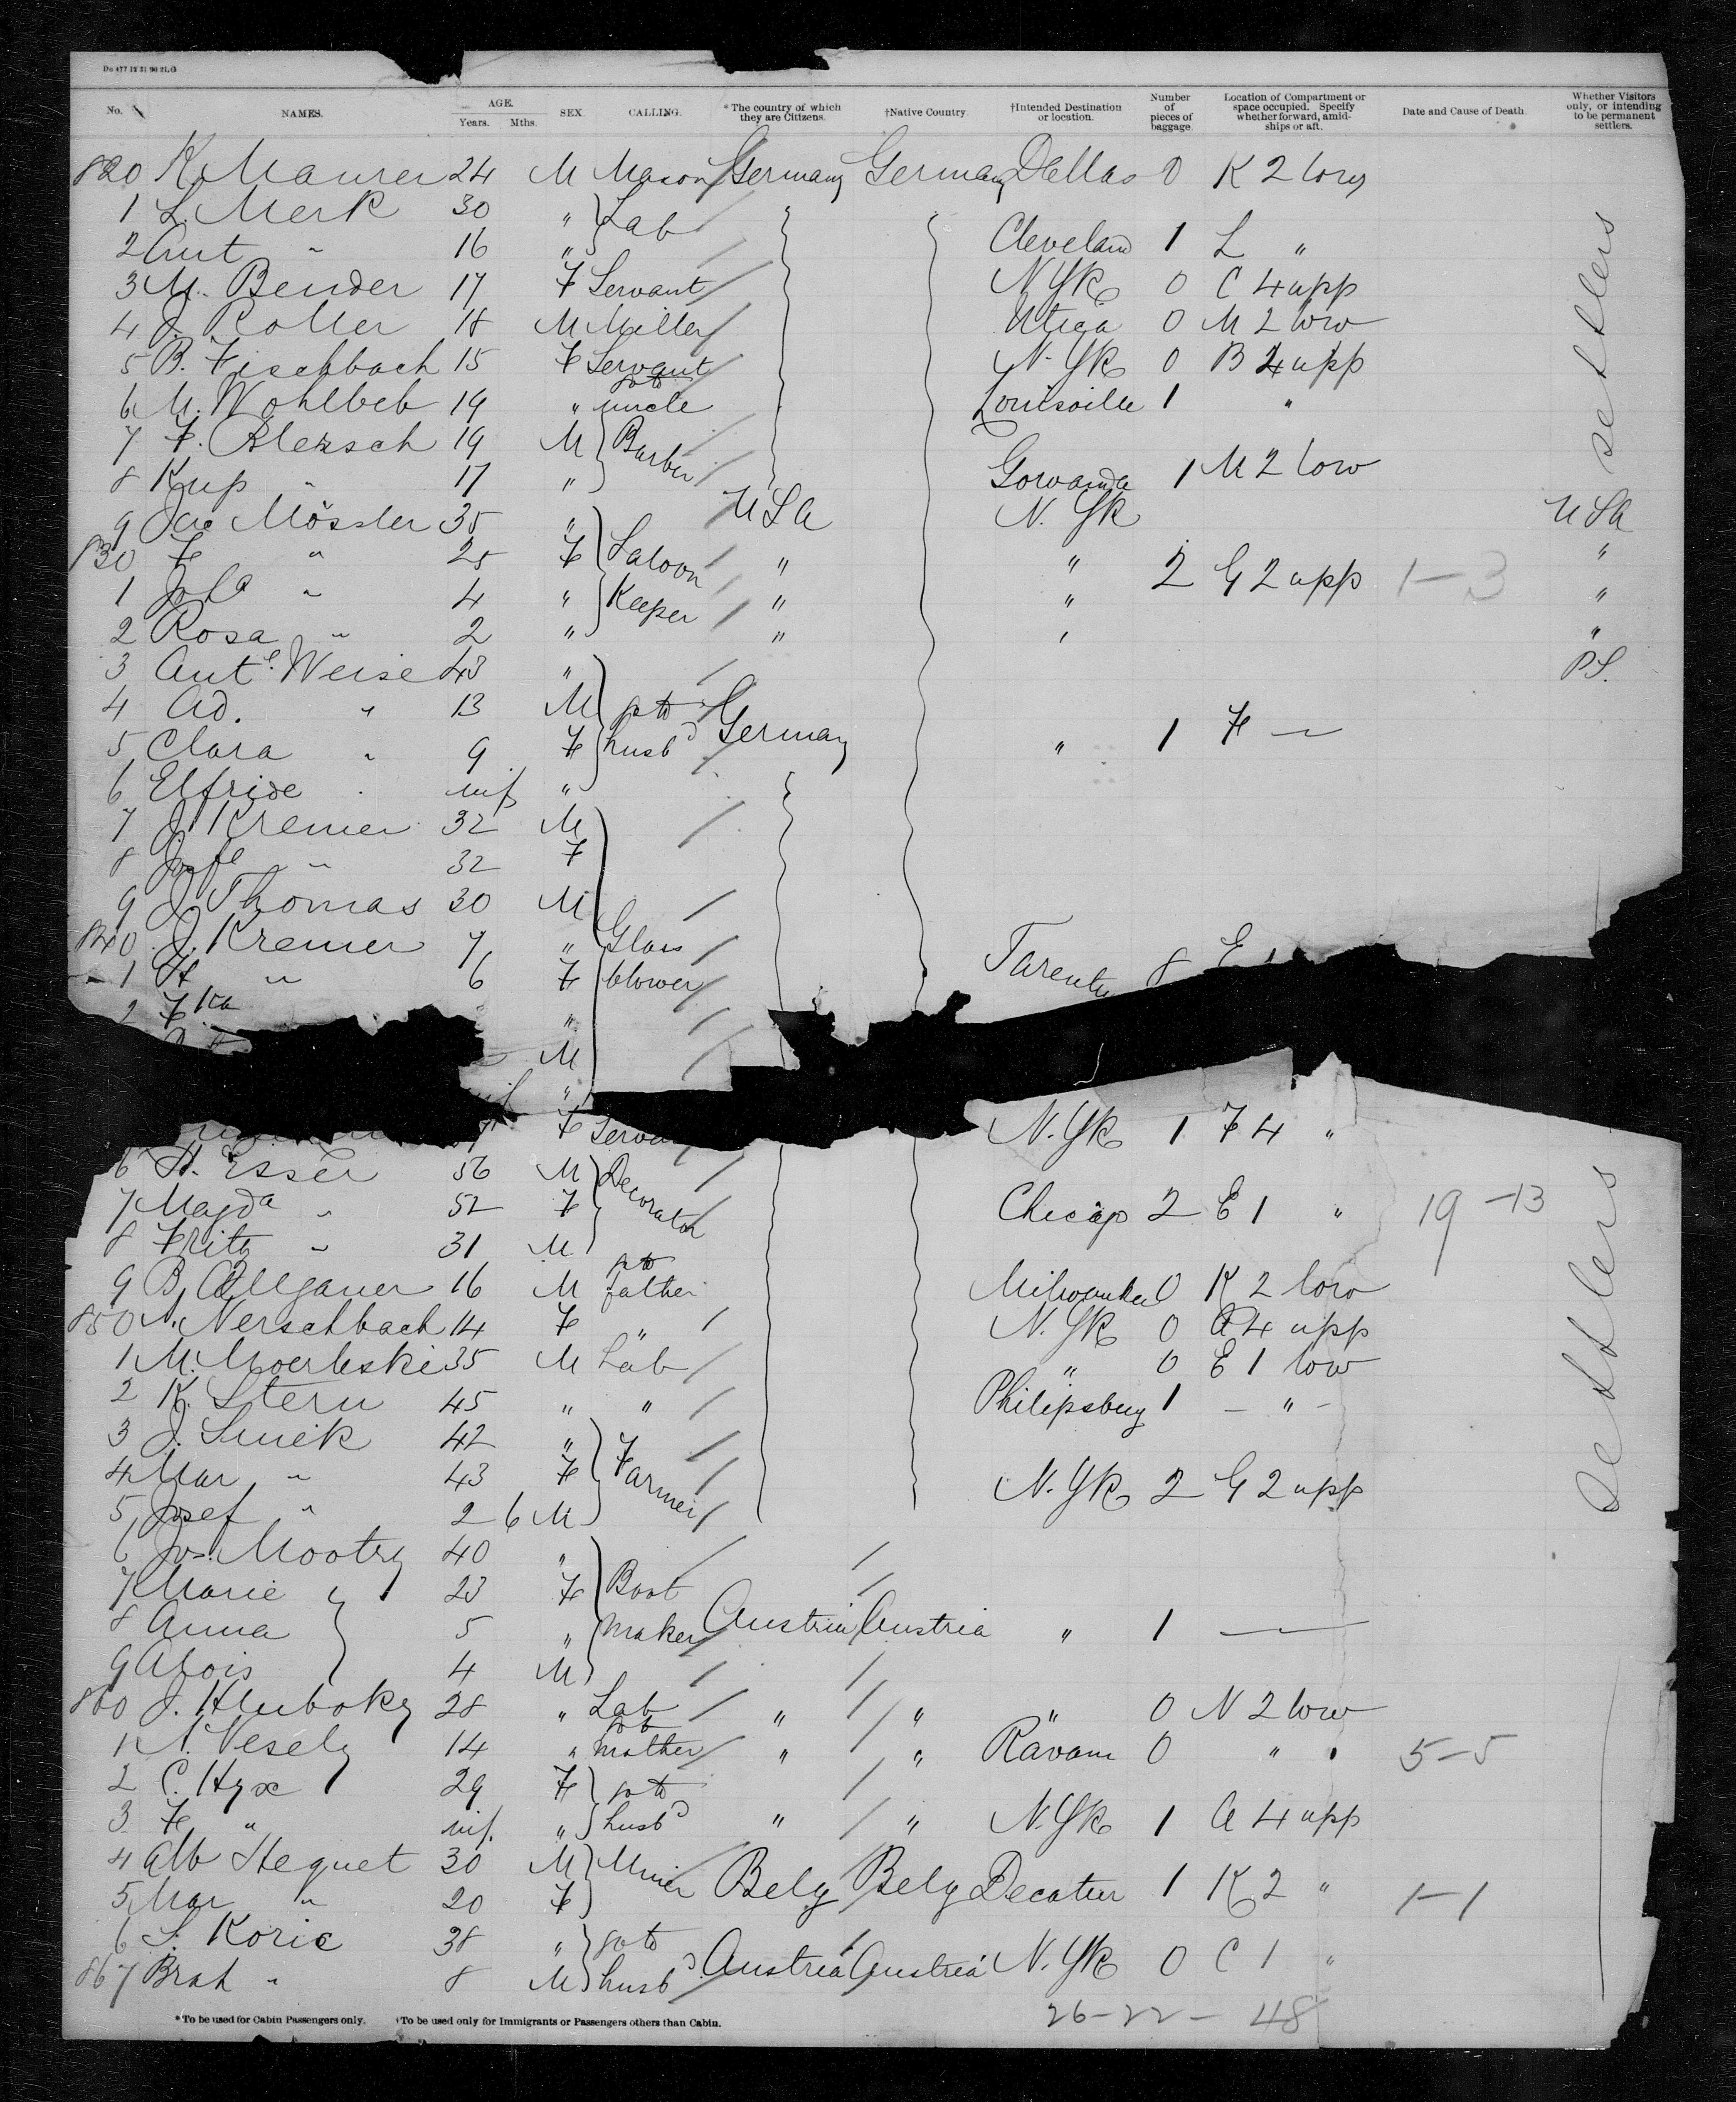 Do 477 12 31 90 2L.G
No. NAMES. AGE. Years. Mths. SEX CALLING. *The country of which they are Citizens. †Native Country †Intended Destination or location. Number of pieces of baggage Location of Compartment or space occupied. Specify whether forward, amidships or aft. Date and Cause of Death. Whether Visitors only, or intending to be permanent settlers.
820 K. Maurer 24 M Mason Germany Germany Dallas 0 K 2 low
1 L. Merk 30 " Lab
2 Ant " 16 " Cleveland 1 L "
3 M. Bender 17 F Servant N.Yk 0 C 4 upp
4 J. Roller 18 M Miller Utica 0 M 2 low
5 B. Fischbach 15 F Servant N.Yk 0 B 4 upp
6 M. Wohlbeb 19 " to uncle Louisville 1 "
7 F. 19 M Barber
8 " 17 " Gowanda 1 M 2 low
9 Mössler 35 " USA N.Yk USA
830 F " 25 F Saloon " " 2 G 2 upp 1-3 "
1 " 4 " Keeper " " "
2 Rosa " 2 " " "
3 Ant. Weise 43 "
4 Ad. " 13 M to
5 Clara " 9 F husbd Germany " 1 F —
6 Elfride inf "
7 J. Kremer 32 M
8 " 32 F
9 J. Thomas 30 M
840 J. Kremer 7 " Glass
1 " 6 F blower Tarentu 8 E
2 "
M
"
F Serva N.Yk 1 F 4 "
6 H. Esser 56 M Decorator
7 Magda " 52 F Chicago 2 E 1 " 19-13
8 Fritz " 31 M
9 B. Allgauer 16 M to father Milwaukee 0 K 2 low
850 Nerschbach 14 F " N.Yk 0 A 4 upp
1 M. Moerleski 35 M Lab " 0 E 1 low
2 K. Stern 45 " " Philipsburg 1 — " —
3 J. Smek 42 " Farmer
4 Mar " 43 F N.Yk 2 G 2 upp
5 Josef " 2 6 M
6 Jos. Mootry 40 "
7 Marie 23 F Boot
8 Anna 5 " maker Austria Austria " 1 —
9 Alois 4 M
860 J. Hluboky 28 " Lab " " " 0 N 2 low
1 Vesely 14 " to mother " " 0 " 5-5
2 C. Hyx 29 F to
3 F " inf. " husbd " " N.Yk 1 A 4 upp
4 Alb Hequet 30 M Miner Belg Belg Decatur 1 K 2 " 1-1
5 Mar " 20 F
6 S. Koric 38 " to
867 " 8 M husbd Austria Austria N.Yk 0 C 1 "
settlers
settlers
*To be used for Cabin Passengers only. †To be used only for Immigrants or Passengers others than Cabin.
26-22- 48